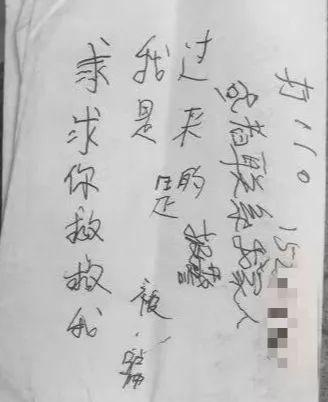 求求你救救我
我是是被骗
过来的
打110
或者联系我家人
152